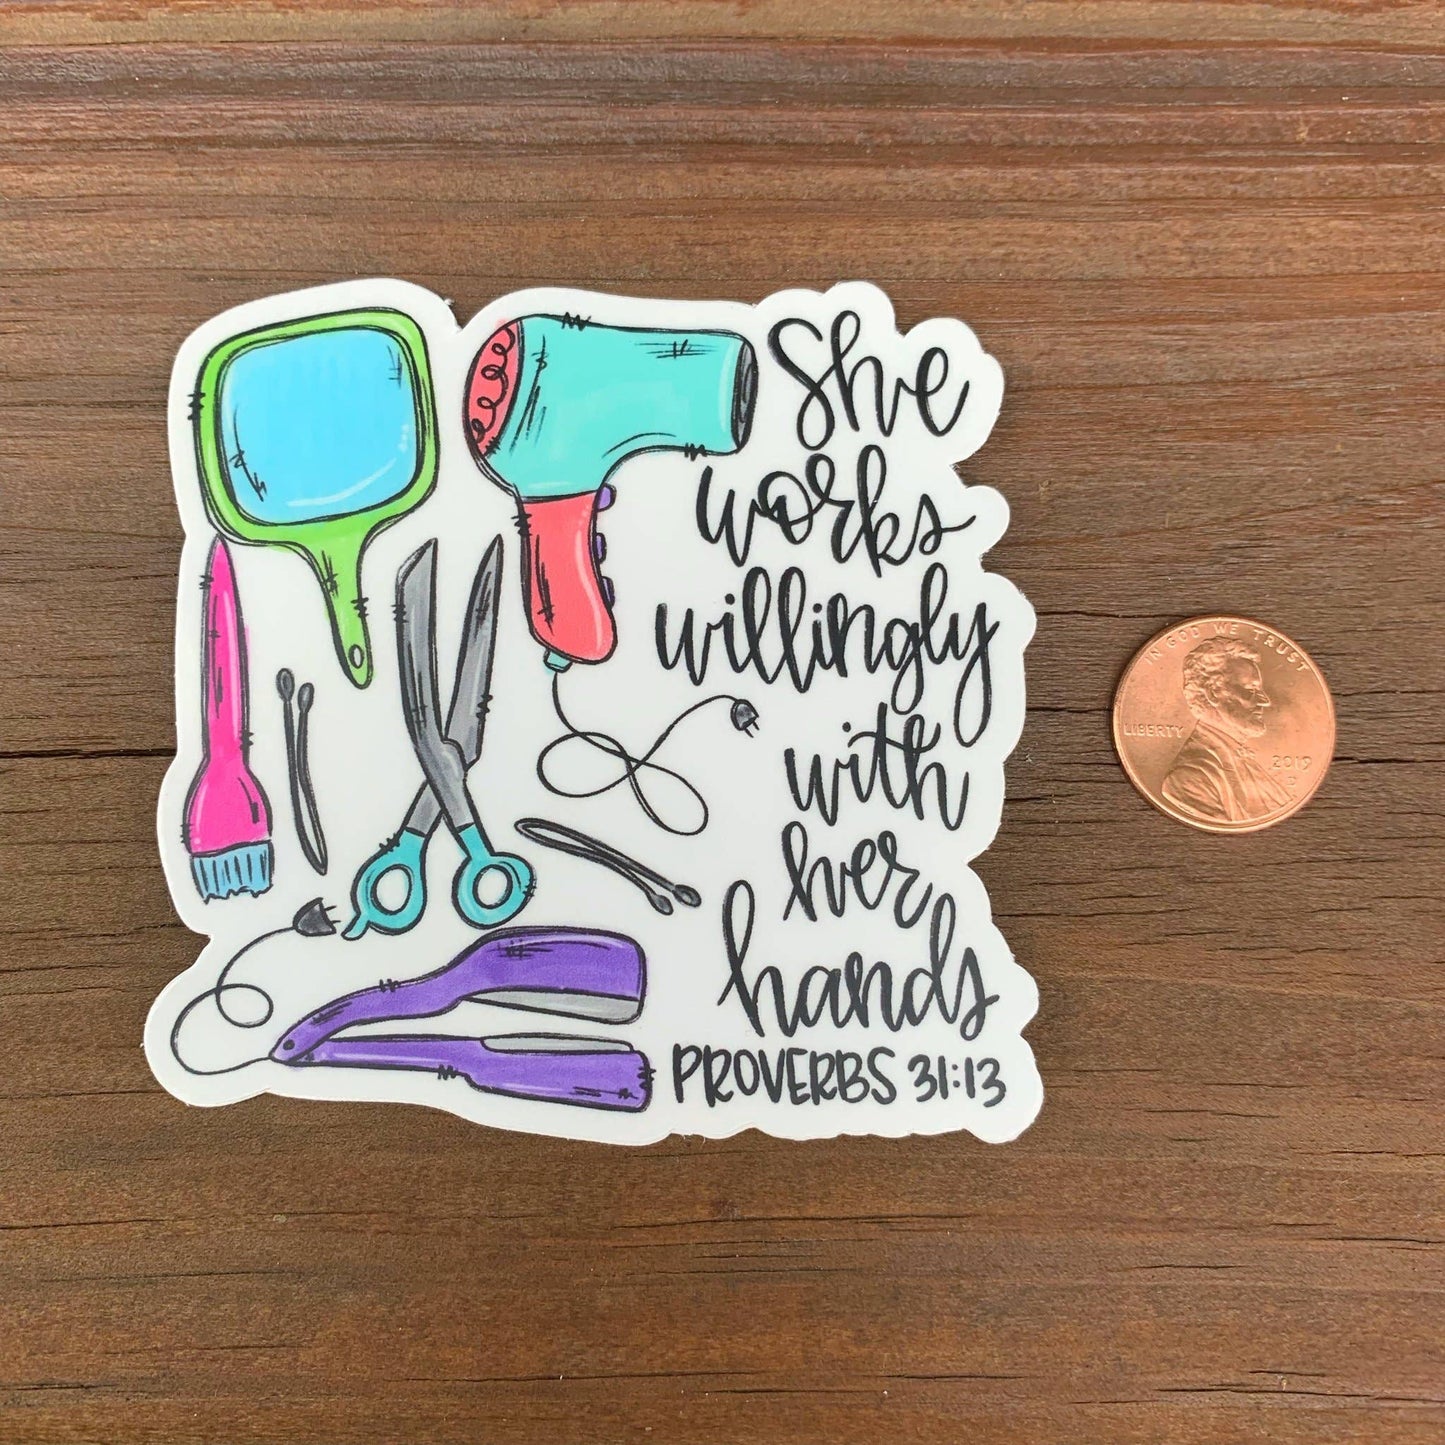 She
works
willingly
with
her
hands
PROVERBS 31:13
IN GOD WE TRUST
LIBERTY
2019
D